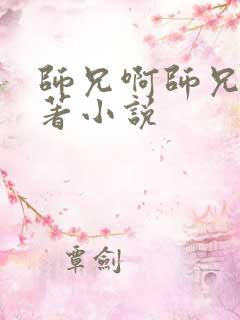 師兄啊師兄
著小説
覃劍